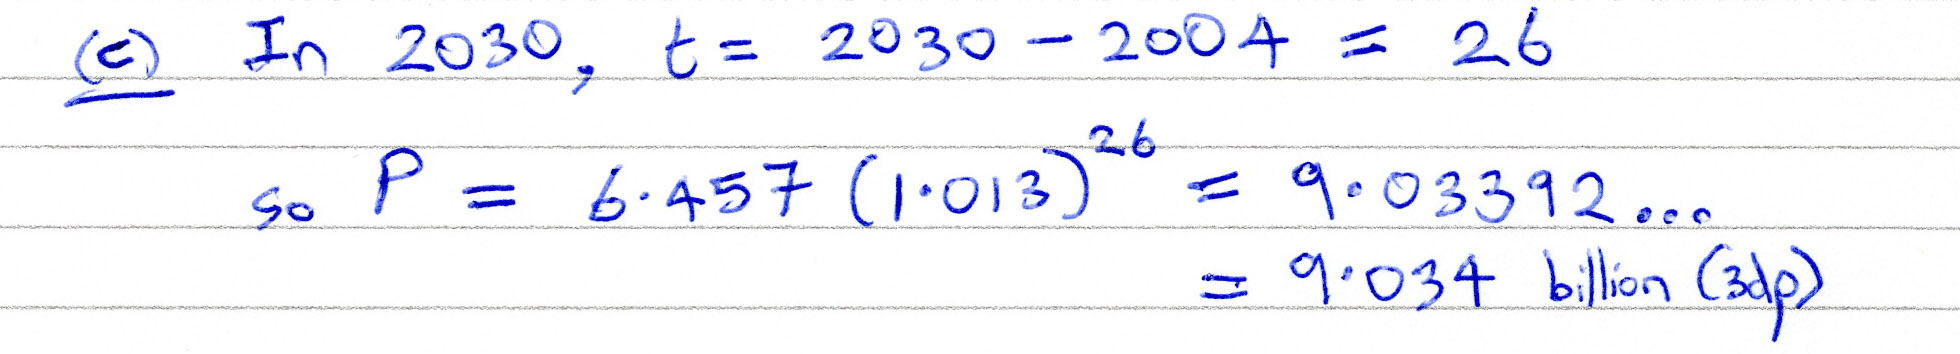 (c) In 2030, t = 2030 - 2004 = 26
so P = 6·457 (1·013)^26 = 9·03392...
= 9·034 billion (3dp)